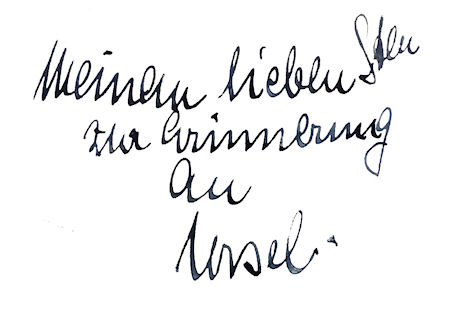 Meinem lieben
zur Erinnerung
an
Ursel.